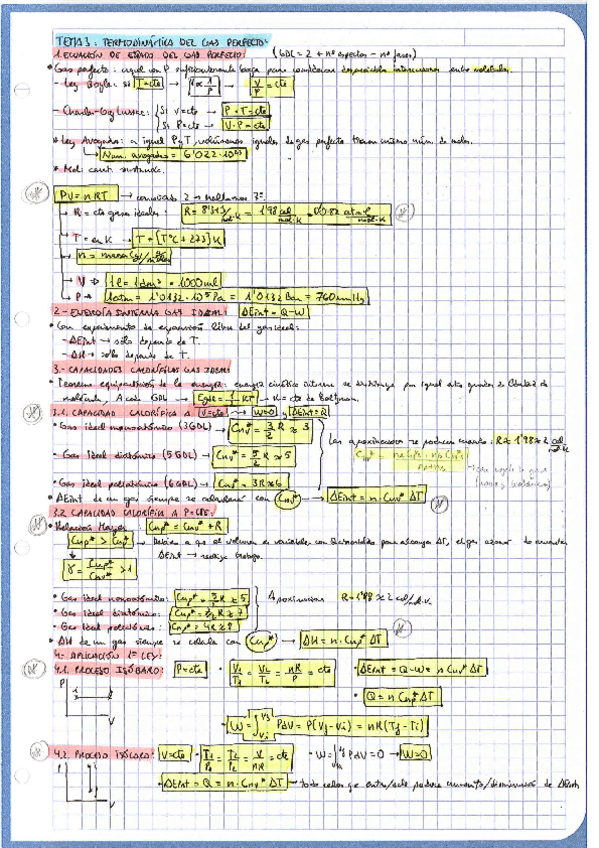 TEMA 3: TERMODINÁMICA DEL GAS PERFECTO:
1. ECUACIÓN DE ESTADO DEL GAS PERFECTO (GDL = 2 + nº especies - nº fases)
• Gas perfecto: aquel con P suficientemente baja para considerar interacciones entre moléculas.
- Ley Boyle: si T=cte → V∝1/P → = cte
- Charles-Gay Lussac: Si V=cte →
Si P=cte →
* Ley Avogadro: a igual P y T, volúmenes iguales de gas perfecto tienen mismo núm. de moles.
→ Num. avogadro = 6'022·10²³
* Mol: cant. sustancia.
PV = nRT → conocidas 2 → hallamos 3ª.
→ R = cte gases ideales: R = 8'31 J/mol·K = 1'98 cal/mol·K = 0'082 atm·l/mol·K
→ T = en K → T = [TºC + 273] K
→ V ⇒ 1l = 1dm³ = 1000ml
→ P → 1atm = 1'0132·10⁵ Pa = 1'0132 Bar = 760mmHg
2- ENERGÍA INTERNA GAS IDEAL: ΔEint = Q-W
• Con experimento de expansión libre del gas ideal:
- ΔEint → sólo depende de T.
- ΔH → sólo depende de T.
3- CAPACIDADES CALORÍFICAS GAS IDEAL
• Teorema equipartición de la energía: energía cinética interna se distribuye por igual entre grados de libertad de
molécula. A cada GDL → = 1/2 KT → K = cte de Boltzman.
3.1. CAPACIDAD CALORÍFICA A V=cte → W=0 y ΔEint=Q
• Gas ideal monoatómico (3GDL) → Cmv* = 3/2 R ≈ 3
- Gas ideal diatómico (5GDL) → Cmv* = 5/2 R ≈ 5
- Gas ideal poliatómico (6GDL) → Cmv* = 3R ≈ 6
Las aproximaciones se producen cuando: R ≈ 1'98 ≈ 2 cal/mol·K
• ΔEint de un gas siempre se calculará con Cmv* → ΔEint = n·Cmv* ΔT
3.2 CAPACIDAD CALORÍFICA A P=CTE:
• Relación Mayer: Cmp* = Cmv* + R
Cmp* > Cmv* → Debido a que al volumen es variable, con Q suministrado para alcanzar ΔT, el gas
ΔEint → realiza trabajo.
γ = Cmp*/Cmv* > 1
• Gas ideal monoatómico: Cmp* = 5/2 R ≈ 5
• Gas ideal diatómico: Cmp* = 7/2 R ≈ 7
• Gas ideal poliatómico: Cmp* = 4R ≈ 8
Aproximación R = 1'98 ≈ 2 cal/mol·K
• ΔH de un gas siempre se calcula con Cmp* → ΔH = n·Cmp* ΔT
4- APLICACIÓN 1ª LEY:
4.1. PROCESO ISÓBARO: P=cte • = nR/P = cte • ΔEint = Q-W = n Cmv* ΔT
• Q = n Cmp* ΔT
P
V
• W = ∫ PdV = P(Vf - Vi) = nR(Tf - Ti)
4.2. PROCESO ISÓCORO: V=cte • = V/nR = cte • W = ∫ PdV = 0 → W=0
P
V
• ΔEint = Q = n·Cmv* ΔT → todo calor que entra/sale produce aumento/disminución de ΔEint